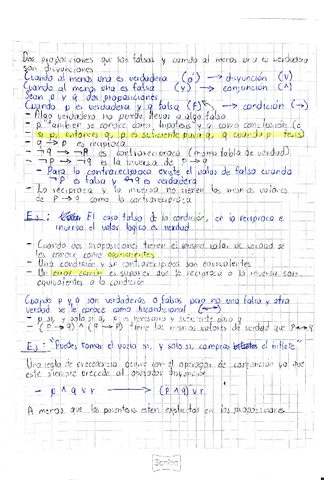 Dos proposiciones que son falsas y cuando al menos una es verdadera
son disyunciones
Cuando al menos una es verdadera (o) → disyunción (∨)
Cuando al menos una es falsa (y) → conjunción (∧)
Sean p y q dos proposiciones
Cuando p es verdadera y q falsa (F) → condición (→)
- Algo verdadero no puede llevar a algo falso
- p también se conoce como hipótesis y q como conclusión
si p, entonces q, p es suficiente para q, q cuando p
- q → p es recíproca
- ¬q → ¬p es contrarecíproca (misma tabla de verdad)
- ¬p → ¬q es la inversa de p → q
- Para la contrarecíproca existe el valor de falso cuando
¬p es falsa y ¬q es verdadera
- La recíproca y la inversa no tienen los mismos valores
de p → q como la contrarecíproca
Ej: El caso falso de la condición, en la recíproca e
inversa el valor lógico es verdad
- Cuando dos proposiciones tienen el mismo valor de verdad se
les conoce como equivalentes
- Una condición y su contrarecíproca son equivalentes
- Un error común es suponer que la recíproca o la inversa son
equivalentes a la condición
Cuando p y q son verdaderas o falsas pero no una falsa y otra
verdad se le conoce como bicondicional (↔)
- p si, y solo si q, p es necesario y suficiente para q
- (p → q) ∧ (q → p) tiene los mismos valores de verdad que p ↔ q
Ej: "Puedes tomar el vuelo si, y solo si, compras el billete"
Una regla de precedencia ocurre con el operador de conjunción ya que
este siempre precede al operador disyunción
- p ∧ q ∨ r → (p ∧ q) ∨ r
A menos que los paréntesis estén explícitos en las proposiciones
Scribe